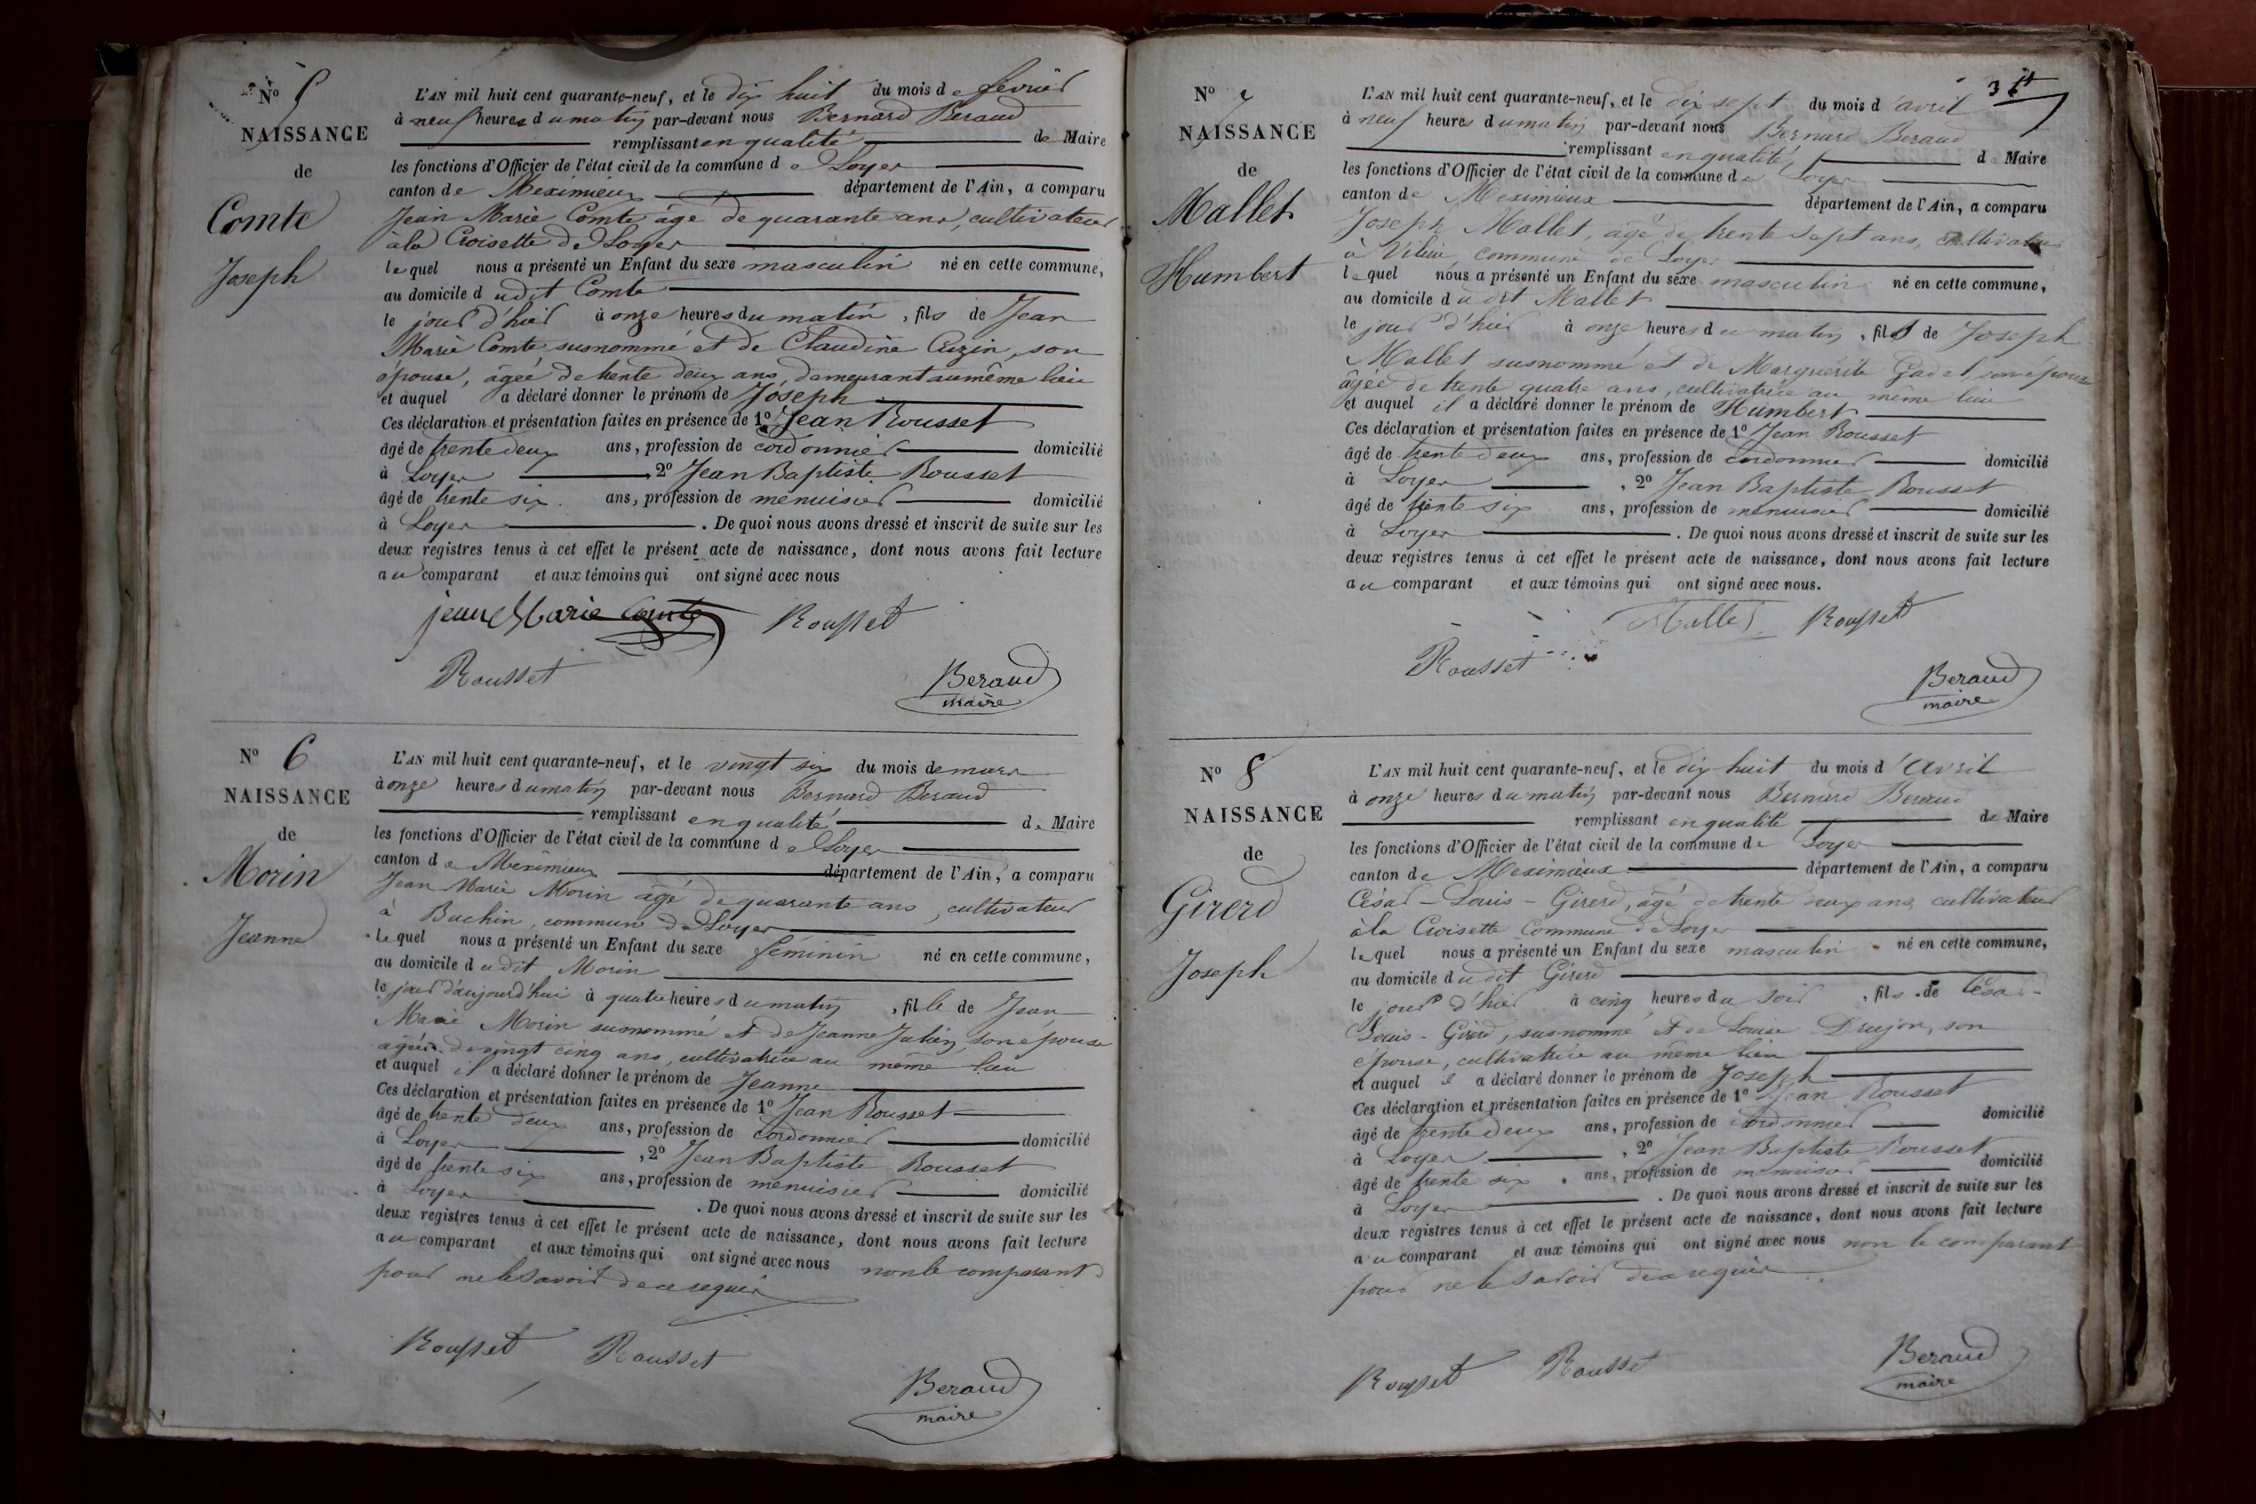 N° 5
NAISSANCE
de
Comte
Joseph
L'AN mil huit cent quarante-neuf, et le dix huit du mois de fevrier
à neuf heures du matin par-devant nous Bernard Beraud
remplissant en qualité de Maire
les fonctions d'Officier de l'état civil de la commune de Loyer
canton de Meximieux département de l'Ain, a comparu
Jean Marie Comte âgé de quarante ans, cultivateur
à la Croisette de Loyer
lequel nous a présenté un Enfant du sexe masculin né en cette commune,
au domicile dudit Comte
le jour d'hier à onze heures du matin, fils de Jean
Marie Comte susnommé et de Claudine son
épouse, âgée de trente deux ans, demeurant au même lieu
et auquel a déclaré donner le prénom de Joseph
Ces déclaration et présentation faites en présence de 1° Jean Rousset
âgé de trente deux ans, profession de cordonnier domicilié
à Loyer 2° Jean Baptiste Rousset
âgé de trente six ans, profession de menuisier domicilié
à Loyer. De quoi nous avons dressé et inscrit de suite sur les
deux registres tenus à cet effet le présent acte de naissance, dont nous avons fait lecture
au comparant et aux témoins qui ont signé avec nous
jean Marie Comte Rousset
Rousset
Beraud
maire
N° 6
NAISSANCE
de
Morin
Jeanne
L'AN mil huit cent quarante-neuf, et le vingt six du mois de mars
à onze heures du matin par-devant nous Bernard Beraud
remplissant en qualité de Maire
les fonctions d'Officier de l'état civil de la commune de Loyer
canton de Meximieux département de l'Ain, a comparu
Jean Marie Morin âgé de quarante ans, cultivateur
à Buchin, commune de Loyer
lequel nous a présenté un Enfant du sexe féminin né en cette commune,
au domicile dudit Morin
le jour d'aujourd'hui à quatre heures du matin, fille de Jean
Marie Morin susnommé et de Jeanne Julien, son épouse
agée de vingt cinq ans, cultivatrice au même lieu
et auquel il a déclaré donner le prénom de Jeanne
Ces déclaration et présentation faites en présence de 1° Jean Rousset
âgé de trente deux ans, profession de cordonnier domicilié
à Loyer, 2° Jean Baptiste Rousset
âgé de trente six ans, profession de menuisier domicilié
à Loyer. De quoi nous avons dressé et inscrit de suite sur les
deux registres tenus à cet effet le présent acte de naissance, dont nous avons fait lecture
au comparant et aux témoins qui ont signé avec nous non le comparant
pour ne le savoir de ce requis
Rousset Rousset
Beraud
maire
N° 7
NAISSANCE
de
Mallet
Humbert
L'AN mil huit cent quarante-neuf, et le dix sept du mois d'avril
à neuf heures du matin par-devant nous Bernard Beraud
remplissant en qualité de Maire
les fonctions d'Officier de l'état civil de la commune de Loyer
canton de Meximieux département de l'Ain, a comparu
Joseph Mallet, âgé de trente sept ans, cultivateur
à commune de Loyer
lequel nous a présenté un Enfant du sexe masculin né en cette commune,
au domicile dudit Mallet
le jour d'hier à onze heures du matin, fils de Joseph
Mallet susnommé et de Marguerite Gadet, son épouse
âgée de trente quatre ans, cultivatrice au même lieu
et auquel il a déclaré donner le prénom de Humbert
Ces déclaration et présentation faites en présence de 1° Jean Rousset
âgé de trente deux ans, profession de cordonnier domicilié
à Loyer, 2° Jean Baptiste Rousset
âgé de trente six ans, profession de menuisier domicilié
à Loyer. De quoi nous avons dressé et inscrit de suite sur les
deux registres tenus à cet effet le présent acte de naissance, dont nous avons fait lecture
au comparant et aux témoins qui ont signé avec nous.
Mallet Rousset
Rousset
Beraud
maire
N° 8
NAISSANCE
de
Girerd
Joseph
L'AN mil huit cent quarante-neuf, et le dix huit du mois d'avril
à onze heures du matin par-devant nous Bernard Beraud
remplissant en qualité de Maire
les fonctions d'Officier de l'état civil de la commune de Loyer
canton de Meximieux département de l'Ain, a comparu
César-Louis-Girerd, âgé de trente deux ans, cultivateur
à la Croisette Commune de Loyer
lequel nous a présenté un Enfant du sexe masculin né en cette commune,
au domicile dudit Girerd
le jour d'hier à cinq heures du soir, fils de César-
Louis-Girerd, susnommé et de Louise Drujon, son
épouse, cultivatrice au même lieu
et auquel il a déclaré donner le prénom de Joseph
Ces déclaration et présentation faites en présence de 1° Jean Rousset
âgé de trente deux ans, profession de cordonnier domicilié
à Loyer, 2° Jean Baptiste Rousset
âgé de trente six ans, profession de menuisier domicilié
à Loyer. De quoi nous avons dressé et inscrit de suite sur les
deux registres tenus à cet effet le présent acte de naissance, dont nous avons fait lecture
au comparant et aux témoins qui ont signé avec nous non le comparant
pour ne le savoir de ce requis
Rousset Rousset
Beraud
maire